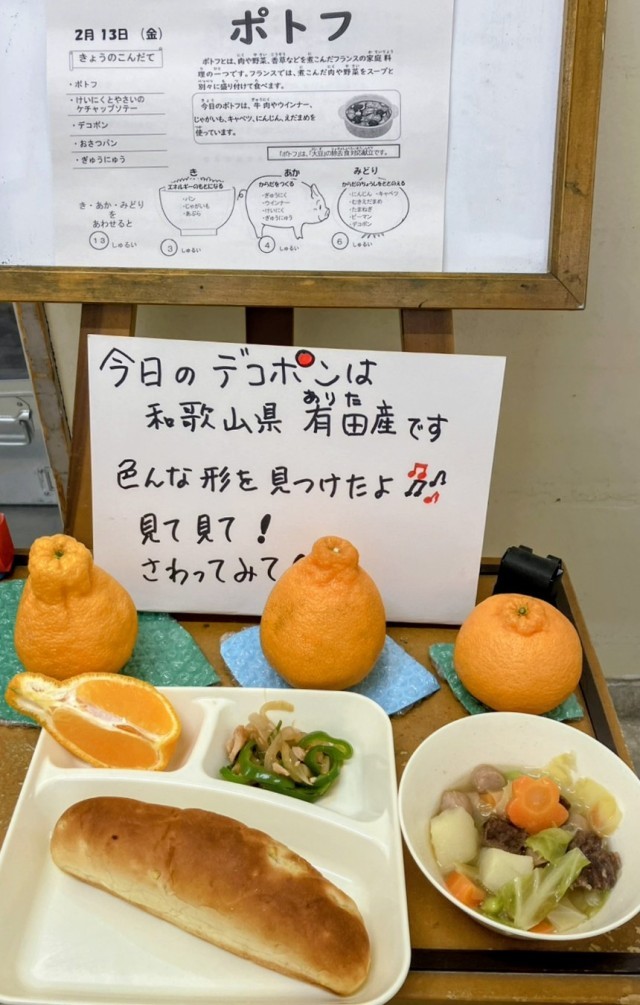 ポトフ
2月 13日 (金)
きょうのこんだて
・ポトフ
・けいにくとやさいの
ケチャップソテー
・デコポン
・おさつパン
・ぎゅうにゅう
ポトフとは、肉や野菜、香草などを煮こんだフランスの家庭料
理の一つです。フランスでは、煮こんだ肉や野菜をスープと
別々に盛り付けて食べます。
今日のポトフは、牛肉やウインナー、
じゃがいも、キャベツ、にんじん、えだまめを
使っています。
き・あか・みどり
を
あわせると
13 しゅるい
き
エネルギーのもとになる
・パン
・じゃがいも
・あぶら
3 しゅるい
あか
からだをつくる
・ぎゅうにく
・ウインナー
・けいにく
・ぎゅうにゅう
4 しゅるい
みどり
からだのちょうしをととのえる
・にんじん ・キャベツ
・むきえだまめ
・たまねぎ
・ピーマン
・デコポン
6 しゅるい
今日のデコポンは
ありた
和歌山県 有田産です
色んな形を見つけたよ
見て見て!
さわってみて